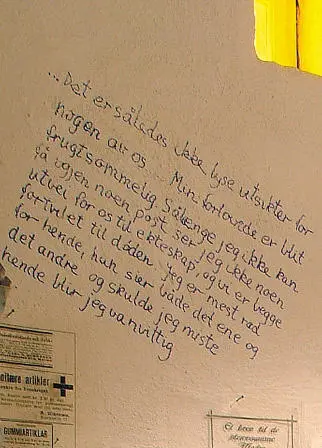 ... Det er således ikke lyse utsikter for
nogen av os ... Min forlovede er blit
frugtsommelig. Sålænge jeg ikke kan
få igjen noen post ser jeg ikke noen
utvei for os til ekteskap, og vi er begge
fortvilet til døden. Jeg er mest ræd
for hende, hun sier både det ene og
det andre og skulde jeg miste
hende blir jeg vanvittig
nitære artikler
GUMMIARTIKLAR